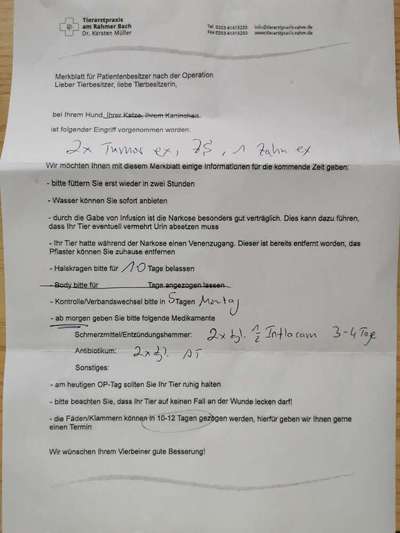 Tierarztpraxis
am Rahmer Bach
Dr. Kersten Müller
Tel. 0203 41813220 info@tierarztpraxis-rahm.de
Fax 0203 41813250 www.tierarztpraxis-rahm.de
Merkblatt für Patientenbesitzer nach der Operation
Lieber Tierbesitzer, liebe Tierbesitzerin,
bei Ihrem Hund, Ihrer Katze, Ihrem Kaninchen
ist folgender Eingriff vorgenommen worden:
2x Tumor ex, ZS, 1 Zahn ex
Wir möchten Ihnen mit diesem Merkblatt einige Informationen für die kommende Zeit geben:
- bitte füttern Sie erst wieder in zwei Stunden
- Wasser können Sie sofort anbieten
- durch die Gabe von Infusion ist die Narkose besonders gut verträglich. Dies kann dazu führen,
dass Ihr Tier eventuell vermehrt Urin absetzen muss
- Ihr Tier hatte während der Narkose einen Venenzugang. Dieser ist bereits entfernt worden, das
Pflaster können Sie zuhause entfernen
- Halskragen bitte für 10 Tage belassen
- Body bitte für Tage angezogen lassen
- Kontrolle/Verbandswechsel bitte in 5 Tagen Montag
- ab morgen geben Sie bitte folgende Medikamente
Schmerzmittel/Entzündungshemmer: 2x tgl. 1/2 Inflacam 3-4 Tage
Antibiotikum: 2x tgl. AT
Sonstiges:
- am heutigen OP-Tag sollten Sie Ihr Tier ruhig halten
- bitte beachten Sie, dass Ihr Tier auf keinen Fall an der Wunde lecken darf!
- die Fäden/Klammern können in 10-12 Tagen gezogen werden, hierfür geben wir Ihnen gerne
einen Termin
Wir wünschen Ihrem Vierbeiner gute Besserung!